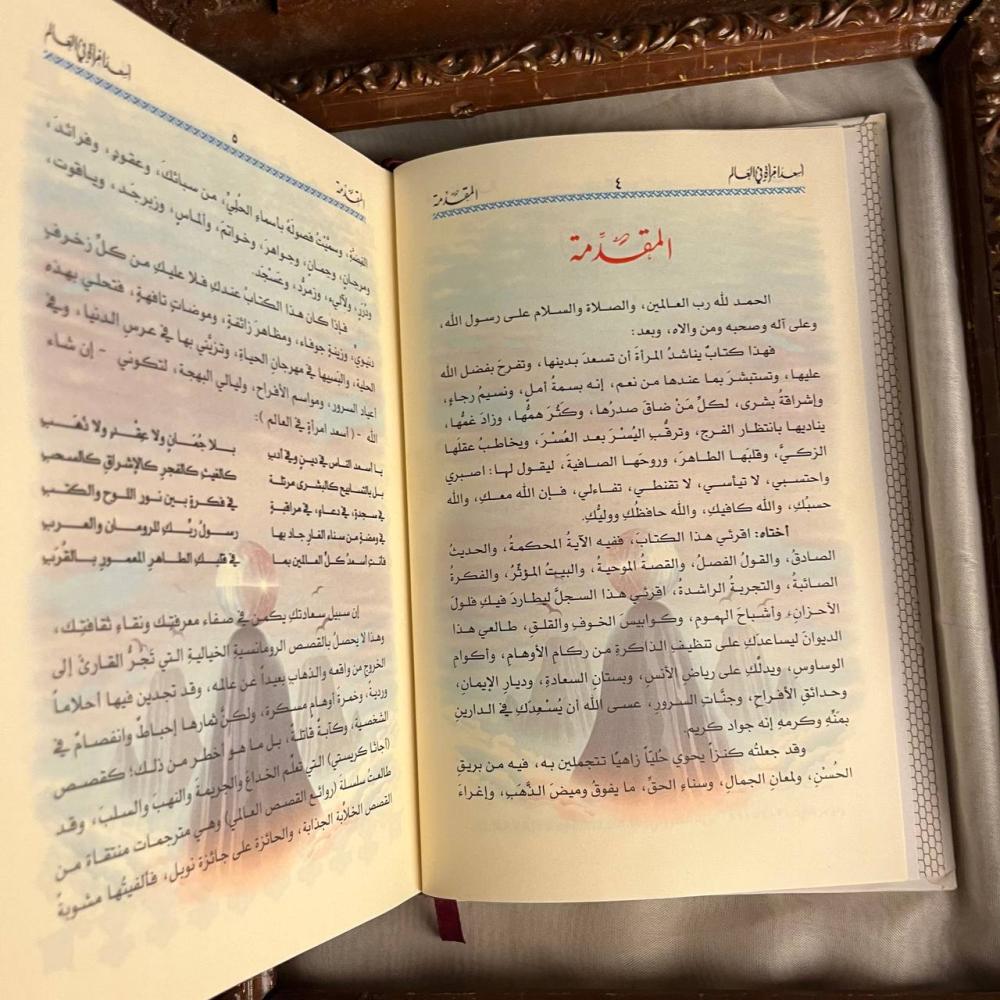 أسعد امرأة في العالم
٤
المقدّمة
المقدّمة
الحمد لله رب العالمين، والصلاة والسلام على رسول الله،
وعلى آله وصحبه ومن والاه، وبعد:
فهذا كتابٌ يناشدُ المرأةَ أن تسعدَ بدينها، وتفرحَ بفضل الله
عليها، وتستبشرَ بما عندها من نعم، إنه بسمةُ أملٍ، ونسيمُ رجاءٍ،
وإشراقةُ بشرى، لكلِّ مَنْ ضاقَ صدرُها، وكَثُرَ همُّها، وزادَ غمُّها،
يناديها بانتظار الفرج، وترقُّبِ اليُسْرَ بعد العُسْرَ، ويخاطبُ عقلَها
الزكيَّ، وقلبَها الطاهرَ، وروحَها الصافيةَ، ليقول لها: اصبري
واحتسبي، لا تيأسي، لا تقنطي، تفاءلي، فإن الله معكِ، والله
حسبُكِ، والله كافيكِ، والله حافظكِ ووليُّكِ.
أختاه: اقرئي هذا الكتابَ، ففيه الآيةُ المحكمةُ، والحديثُ
الصادقُ، والقولُ الفصلُ، والقصةُ الموحيةُ، والبيتُ المؤثّرُ، والفكرةُ
الصائبةُ، والتجربةُ الراشدةُ، اقرئي هذا السجلَّ ليطاردَ فيكِ فلولَ
الأحزانِ، وأشباحَ الهمومِ، وكوابيسَ الخوفِ والقلقِ، طالعي هذا
الديوانَ ليساعدَكِ على تنظيفِ الذاكرةِ من ركامِ الأوهامِ، وأكوامِ
الوساوسِ، ويدلّكِ على رياضِ الأنسِ، وبستانِ السعادةِ، وديارِ الإيمانِ،
وحدائقِ الأفراحِ، وجنَّاتِ السرورِ، عسى الله أن يُسْعِدَكِ في الدارين
بمنِّهِ وكرمِهِ إنه جواد كريم.
وقد جعلتُه كنزاً يحوي حُليّاً زاهيًا تتجملين به، فيه من بريقِ
الحُسْنِ، ولمعانِ الجمالِ، وسناءِ الحقِّ، ما يفوقُ وميضَ الذَّهَبِ، وإغراءَ
المقدّمة
٥
أسعد امرأة في العالم
الفضّةِ، وسميّتُ فصولَهُ بأسماءِ الحُليِّ، من سبائكَ، وعقودٍ، وفرائدَ،
ومرجانٍ، وجمانٍ، وجواهرَ، وخواتمَ، والماسٍ، وزبرجَد، وياقوت،
ودُرَرٍ، ولآليء، وزمرّد، وعَسْجَد.
فإذا كان هذا الكتابُ عندكِ فلا عليكِ من كلِّ زخرفٍ
دنيويٍّ، وزينةٍ جوفاء، ومظاهرَ زائفةٍ، وموضاتٍ تافهةٍ، فتحلي بهذه
الحلية، والبسيها في مهرجان الحياة، وتزيَّني بها في عرسِ الدنيا، وفي
أعيادِ السرورِ، ومواسمِ الأفراحِ، وليالي البهجة، لتكوني - إن شاء
الله - ( أسعد امرأةٍ في العالم ):
يا أسعد الناس في دينٍ وفي أدبِ بلا جُمَانٍ ولا عِقْدٍ ولا ذَهَبِ
بل بالتسابيح كالبشرى مرتلة كالغيثِ كالفجرِ كالإشراقِ كالسحبِ
في سجدةٍ، في دعاءٍ، في مراقبةٍ في فكرةٍ بين نور اللوح والكتبِ
في ومضةٍ من سناء الغارِ جاد بها رسولُ ربِّكِ للرومان والعربِ
فأنتِ أسعدُ كلِّ العالمين بما في قلبكِ الطاهرِ المعمورِ بالقُرَبِ
إن سبيل سعادتكِ يكمن في صفاءِ معرفتِكِ ونقاءِ ثقافتِكِ،
وهذا لا يحصلُ بالقصصِ الرومانسيةِ الخياليةِ التي تَجُرُّ القارئَ إلى
الخروج من واقعه والذهابِ بعيداً عن عالمه، وقد تجدين فيها أحلاماً
ورديةً، وخمرةَ أوهام مسكرة، ولكنَّ ثمارها إحباطٌ وانفصامٌ في
الشخصية، وكآبةٌ قاتلةٌ، بل ما هو أخطر من ذلك؛ كقصص
(أجاثا كريستي) التي تعلّم الخداعَ والجريمةَ والنهبَ والسلبَ، وقد
طالعتُ سلسلةَ (روائع القصص العالمي) وهي مترجمات منتقاة من
القصص الخلاّبة الجذابة، والحائزة على جائزة نوبل، فألفيتُها مشوبةً